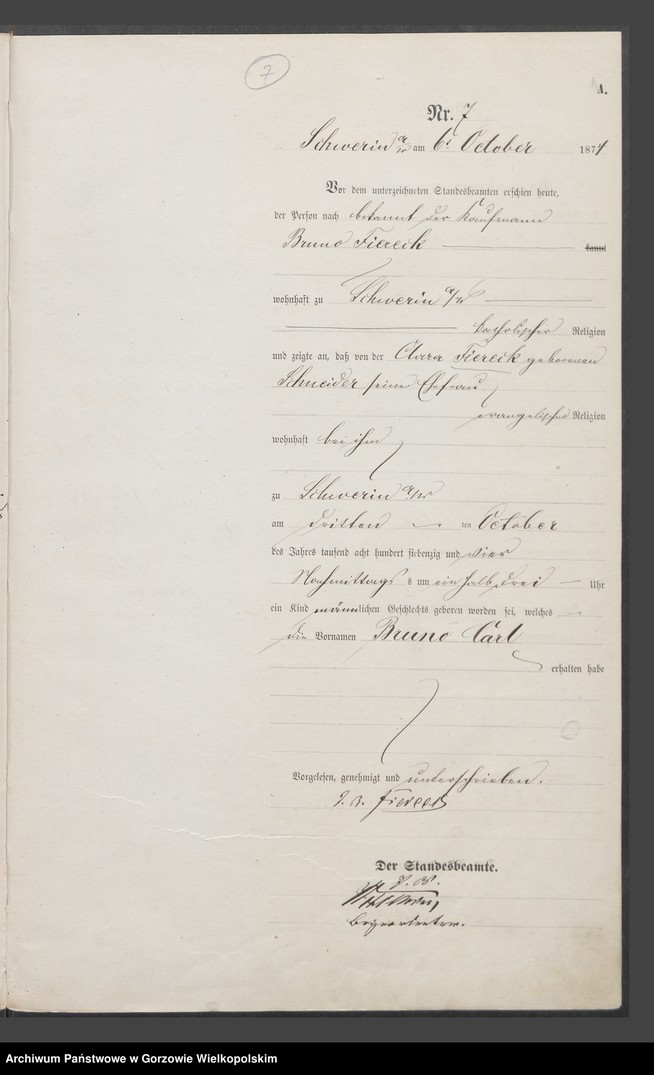 7
A.
Nr. 7
Schwerin a/W am 6t October 1874
Vor dem unterzeichneten Standesbeamten erschien heute,
der Person nach bekannt der Kaufmann
Bruno Fiereck kannt
wohnhaft zu Schwerin a/W
katholischer Religion
und zeigte an, daß von der Clara Fiereck geborenen
Schneider seine Ehefrau
evangelischer Religion
wohnhaft bei ihm
zu Schwerin a/W
am dritten ten October
des Jahres tausend acht hundert siebenzig und vier
Nachmittags s um ein halb drei Uhr
ein Kind männlichen Geschlechts geboren worden sei, welches
die Vornamen Bruno Carl
erhalten habe
Vorgelesen, genehmigt und unterschrieben.
Fiereck
Der Standesbeamte.
Archiwum Państwowe w Gorzowie Wielkopolskim